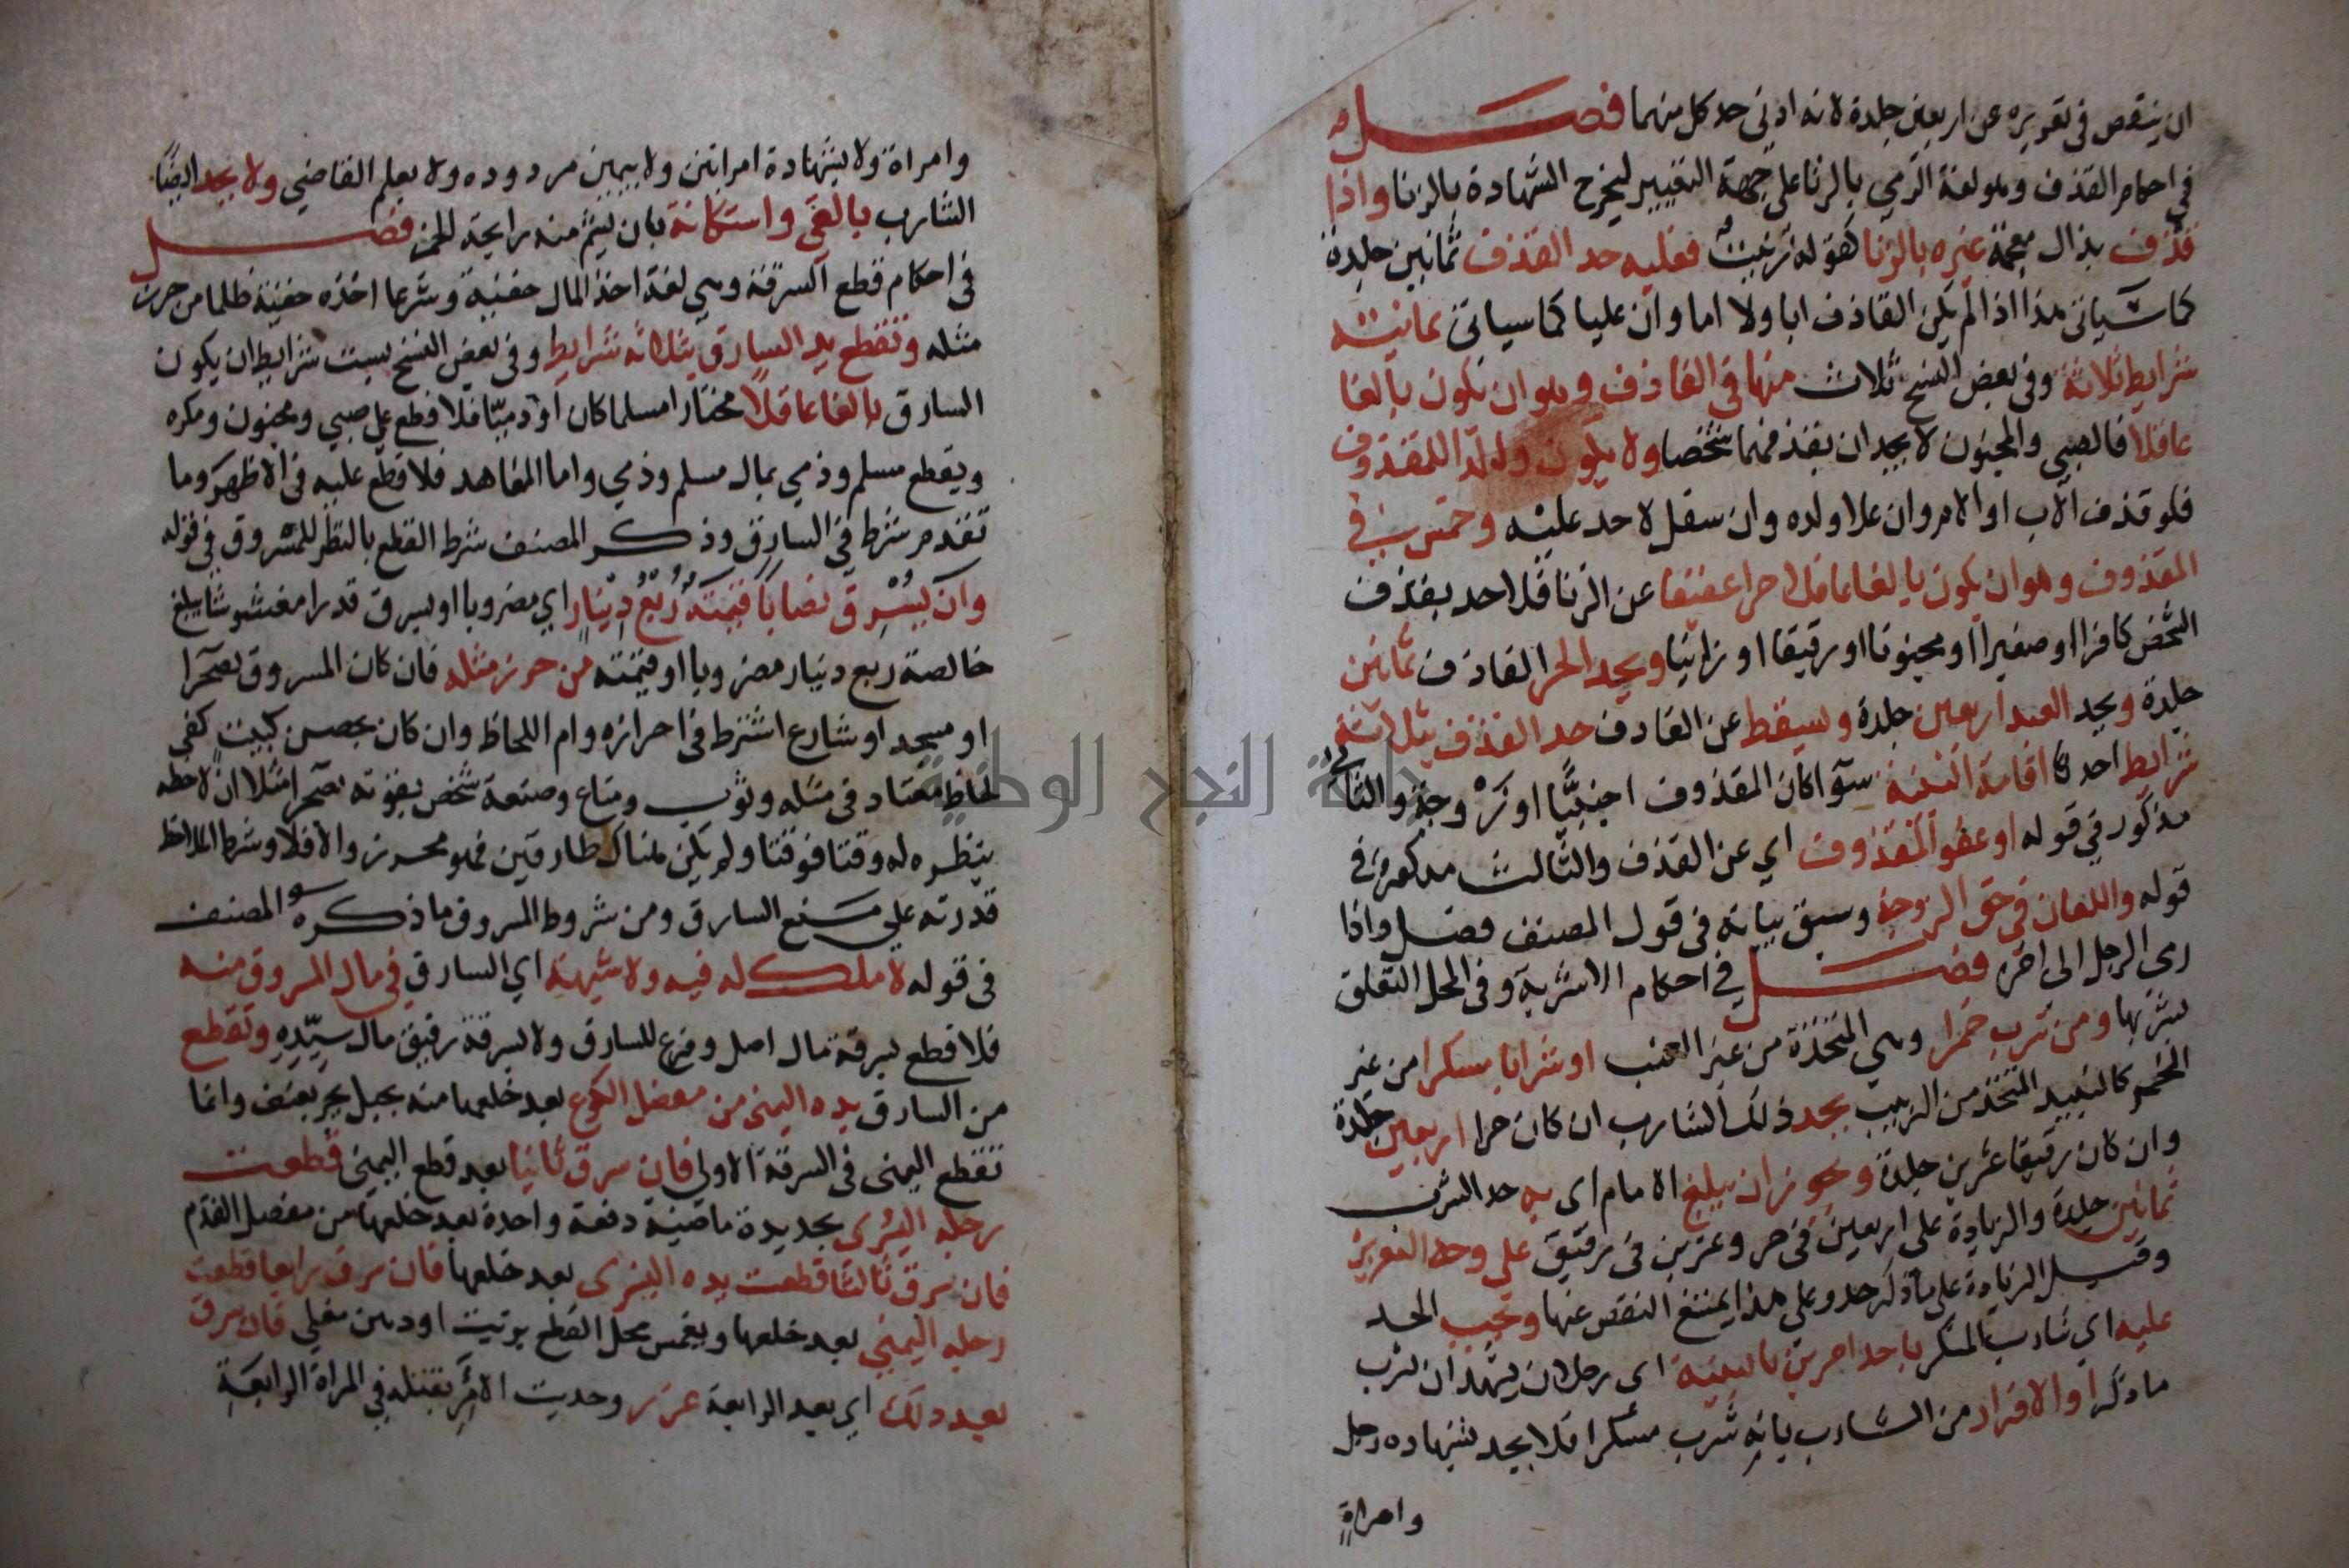 ان ينقص في تعزيره عن اربعين جلدة لانه ادني حد كل منهما فصل
في احكام القذف وهو لغة الرمي بالزنا على جهة التعيير ليخرج الشهادة بالزنا واذا
قذف بذال معجمة غيره بالزنا كقوله زنيت فعليه حد القذف ثمانين جلدة
كما سياتي هذا اذا لم يكن القاذف ابا ولا اما وان عليا كما سياتي بمانية
شرايط ثلاثة وفي بعض النسخ ثلاث منها في القاذف وهو ان يكون بالغا
عاقلا فالصبي والمجنون لا يحد ان بقذفهما شخصا ولا يكون ولدا للمقذوف
فلو قذف الاب او الام وان علا ولده وان سفل لا حد عليه وخمس في
المقذوف وهو ان يكون بالغا عاقلا حرا عفيفا عن الزنا فلا حد بقذف
الشخص كافرا او صغيرا او مجنونا او رقيقا او زانيا ويحد الحر القاذف ثمانين
جلدة ويحد العبد اربعين جلدة ويسقط عن القاذف حد القذف بثلاثة
شرايط احدها اقامة البينة سوآ اكان المقذوف اجنبيا او زوجة والثاني
مذكور في قوله او عفو المقذوف اي عن القذف والثالث مذكور في
قوله واللعان في حق الزوجة وسبق بيانه في قول المصنف فصل واذا
رمى الرجل الى اخره فصل في احكام الاشربة وفي الحد المتعلق
بشربها ومن شرب خمرا وهي المتخذة من عصير العنب او شرابا مسكرا من غير
الخمر كالنبيذ المتخذ من الزبيب يحد ذلك الشارب ان كان حرا اربعين جلدة
وان كان رقيقا عشرين جلدة ويجوز ان يبلغ الامام اى به حد الشرب
ثمانين جلدة والزيادة على اربعين في حر وعشرين في رقيق على وجه التعزير
وقيل الزيادة على ما ذكر حد وعلى هذا يمتنع النقص عنها ويجب الحد
عليه اي شارب المسكر باحد امرين بالبينة اى رجلان يشهدان لشرب
ما ذكر او الاقرار من الشارب بانه شرب مسكرا فلا يحد بشهادة رجل
وامراة
وامراة ولا بشهادة امراتين ولا بيمين مردوده ولا بعلم القاضي ولا يحد ايضا
الشارب بالقئ واستكانة بان يشم منه رايحة الخمر فصل
في احكام قطع السرقة وهي لغة اخذ المال خفية وشرعا اخذه خفية ظلما من حرز
مثله وتقطع يد السارق بثلاثه شرايط وفي بعض النسخ بست شرايط ان يكون
السارق بالغا عاقلا مختار امسلما كان او ذميا فلا قطع على صبي ومجنون ومكره
ويقطع مسلم وذمي بمال مسلم وذمي واما المعاهد فلا قطع عليه في الاظهر وما
تقدم شرط في السارق وذكر المصنف شرط القطع بالنظر للمسروق في قوله
وان يسرق نصابا قيمته ربع دينار اي مضروبا او يسرق قدرا مغشوشا يبلغ
خالصة ربع دينار مضروبا او قيمته من حرز مثله فان كان المسروق بصحرا
او مسجد او شارع اشترط في احرازه دوام اللحاظ وان كان بحصن كبيت كفى
لحاظ معتاد في مثله وثوب ومتاع وضعه شخص بقربه بصحرا مثلا ان لاحظه
بنظره له وقتا فوقتا ولم يكن هناك طارقين فهو محرز والا فلا وشرط الملاحظ
قدرته علي منع السارق ومن شروط المسروق ما ذكره المصنف
في قوله لا ملك له فيه ولا شبهة اي السارق في مال المسروق منه
فلا قطع بسرقة مال اصل وفرع للسارق ولا بسرقة رقيق مال سيده وتقطع
من السارق يده اليمنى من مفصل الكوع بعد خلعها منه بحبل يجر بعنف وانما
تقطع اليمنى في السرقة الاولى فان سرق ثانيا بعد قطع اليمنى قطعت
رجله اليسرى بحديدة ماضية دفعة واحدة بعد خلعها من مفصل القدم
فان سرق ثالثا قطعت يده اليسرى بعد خلعها فان سرق رابعا قطعت
رجله اليمني بعد خلعها ويغمس محل القطع بزيت او دهن مغلي فان سرق
بعد ذلك اي بعد الرابعة عزر وحديث الامر بقتله في المراة الرابعة
جامعة النجاح الوطنية